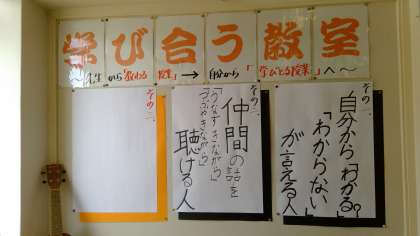 学び合う教室
〜先生から「教わる授業」→自分から「学びとる授業」へ〜
その一、
自分から「わかる。」
「わからない」
が言える人
その二、
仲間の話を
「うなずきながら」
「つぶやきながら」
聴ける人
その三、